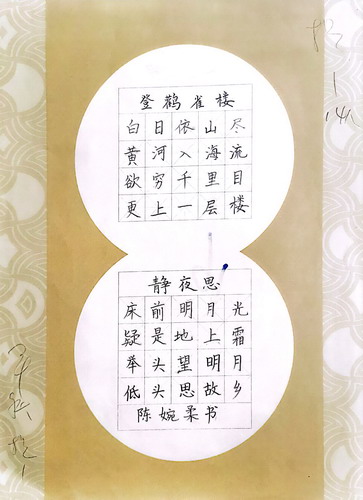 登鹳雀楼
白日依山尽
黄河入海流
欲穷千里目
更上一层楼
静夜思
床前明月光
疑是地上霜
举头望明月
低头思故乡
陈婉柔书